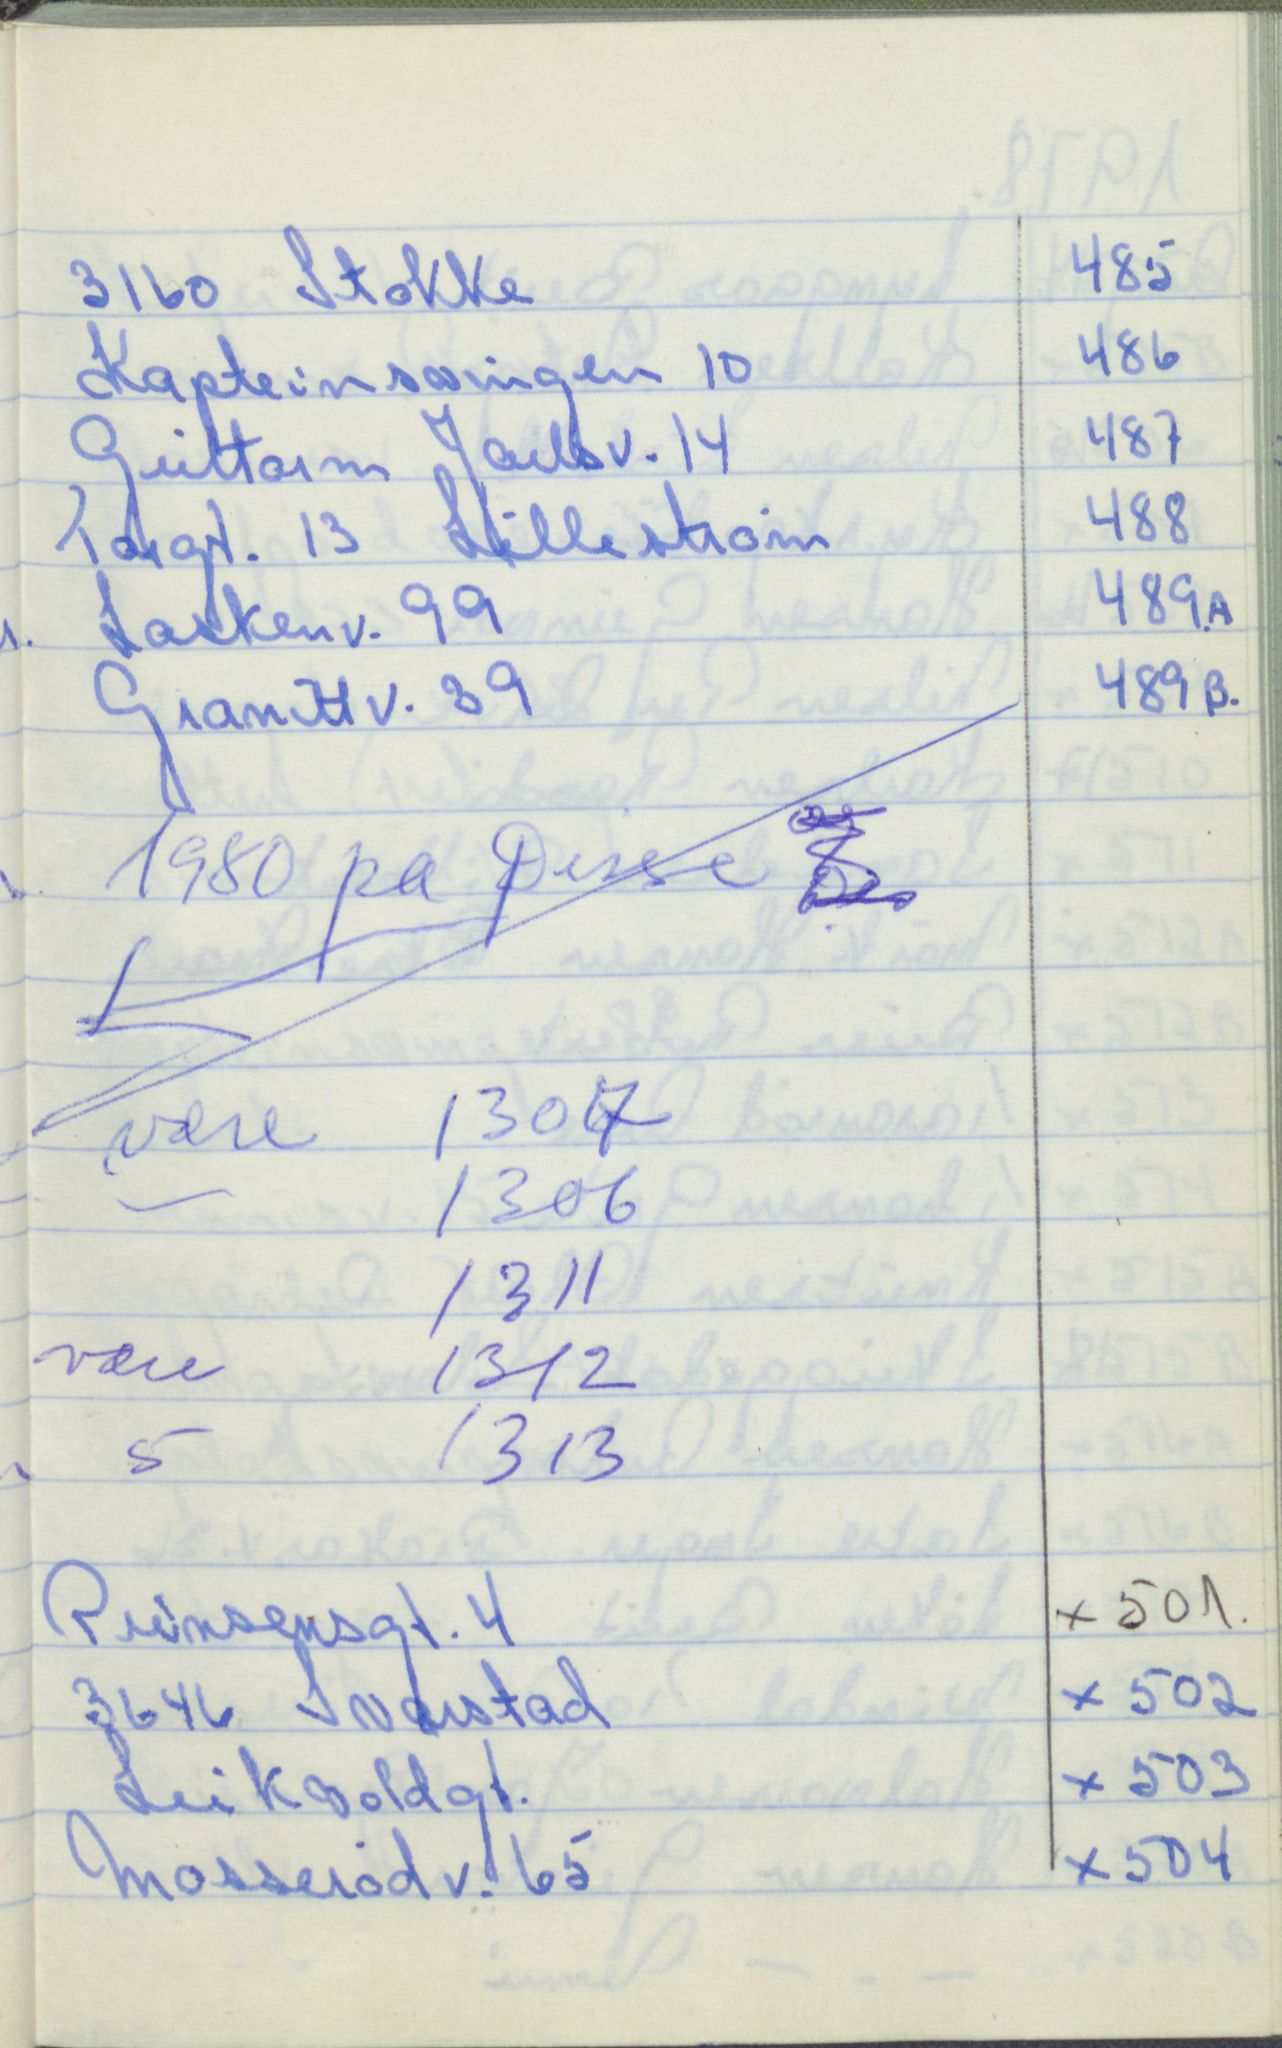 3160 Stokke 485
Kapteinssvingen 10 486
Guttorm Jarlsv. 14 487
Torgt. 13 Lilleström 488
Laskenv. 99 489.A
Granittv. 39 489 B.
1980 på Disse
være 1307
1306
1311
være 1312
5 1313
Prinsensgt. 4 x 501.
3646 Svarstad x 502
Leikvoldgt. x 503
Mosserödv. 65 x 504